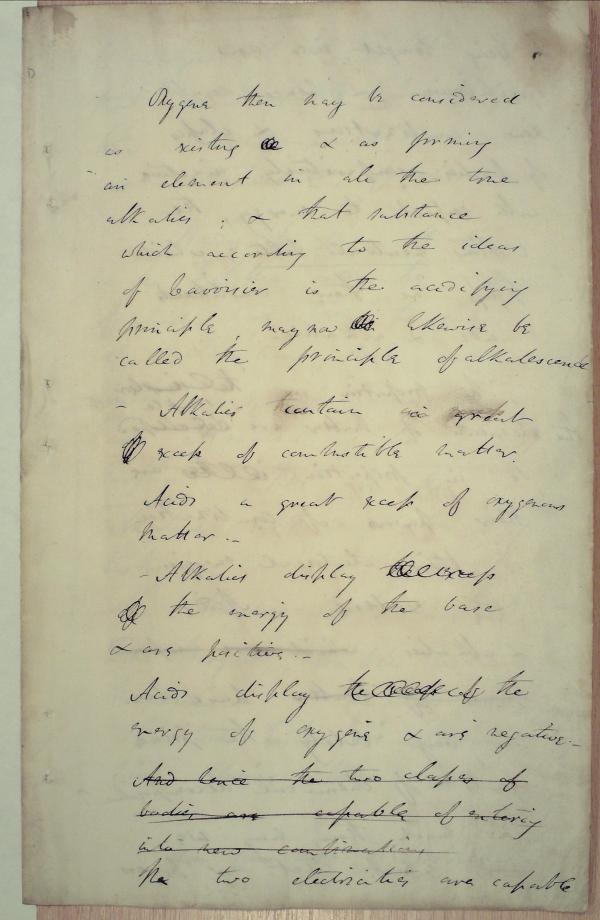 Oxygene then may be considered
as existing & as forming
an element in all the true
alkalies; & that substance
which according to the ideas
of Lavoisier is the acidifying
principle, may now likewise be
called the principle of alkalescence
- Alkalies contain a great
excess of combustible matter.
Acids a great excess of oxygenous
matter.-
- Alkalies display
the energy of the base
& are positive.-
Acids display the of the
energy of oxygene & are negative.-
And hence the two classes of
bodies are capable of entering
into new combinations
The two electricities are capable